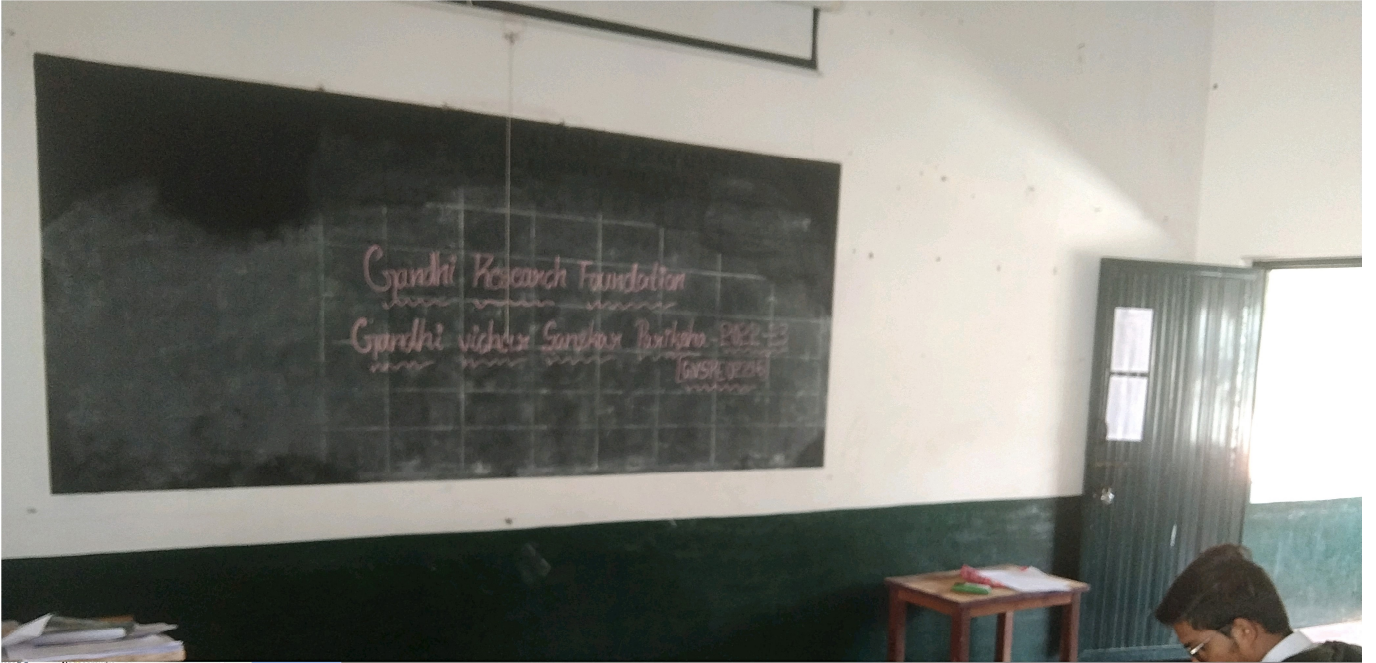 Gandhi Research Foundation
Gandhi vichar Sanskar Pariksha - 2022-23